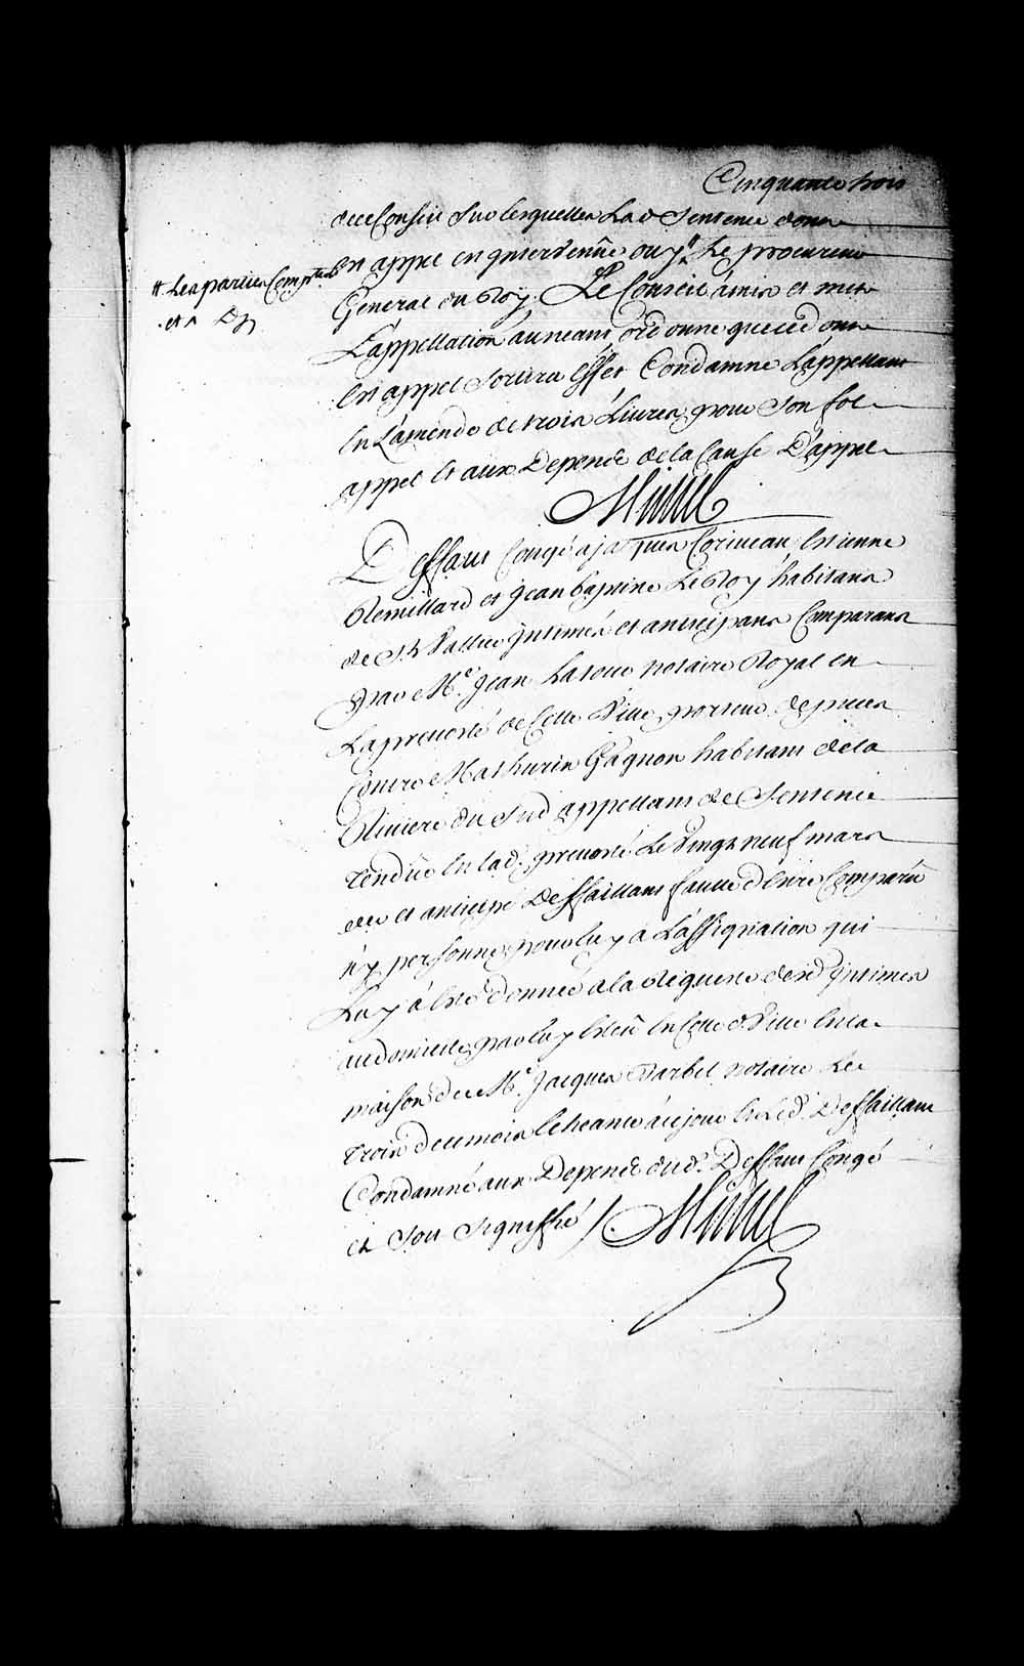 Cinquante trois
de ce Conseil sur lesquelles Lad Sentence dont
est appel en intervenüe ouy # Le procureur
# Les parties Comptes
et
General du Roy. Le Conseil à mis et met
L'appellation au neant, ordonne que ce dont
est appel sortira effet Condamne L'appellant
En L'amende de trois Livres pour son fol
appel et aux Depends de la Cause D'appel
Deffaut Congé a jacques Corriveau Estienne
Remillard et jean baptiste Le Roy habitans
de St Vallier Intimés et anticipans Comparans
par Me. Jean Latour notaire Royal en
La prevosté de Cette Ville, porteur de pieces
Contre Mathurin Gagnon habitant de la
Riviere du Sud appellant de Sentence
rendüe en lad. prevosté Le Vingt neuf mars
der et anticipé Deffaillant faute d'Etre Comparu
n'y personne pour luy à L'assignation qui
Luy à Esté donneé a la Requeste desd. Intimés
au domicile, par luy Esleu en Cette Ville En la
maison de Me. Jacques Barbel notaire Le
trois du mois Echeante à ce jour Et Led. Deffaillant
Condamné aux Depends dud. Deffaut Congé
et soit signiffié /.